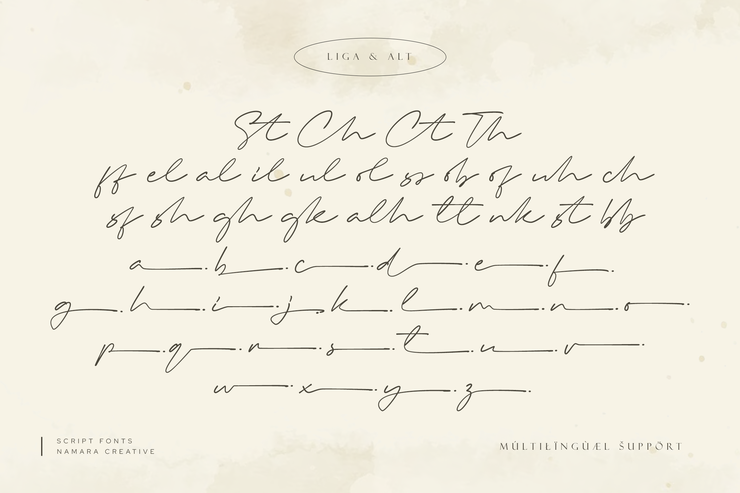 LIGA & ALT
St Ch Ct Th
ff el al il ul ol ss ob of wh ch
sf sh gh gk alh tt nk st bb
a b c d e f
g h i j k l m n o
p q r s t u v
w x y z
SCRIPT FONTS
NAMARA CREATIVE
MÚLTILÏNGÙÆL ŠUPPÖRT